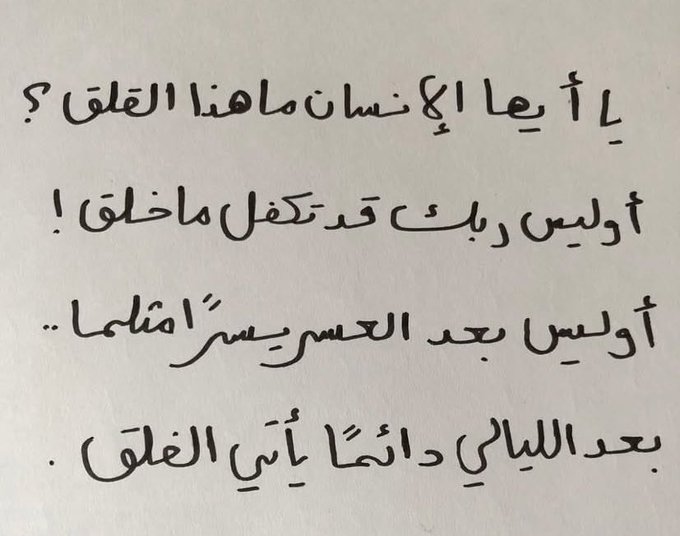 يا أيها الإنسان ما هذا القلق ؟
أوليس ربك قد تكفل ما خلق !
أوليس بعد العسر يسرًا مثلما ..
بعد الليالي دائمًا يأتي الفلق .